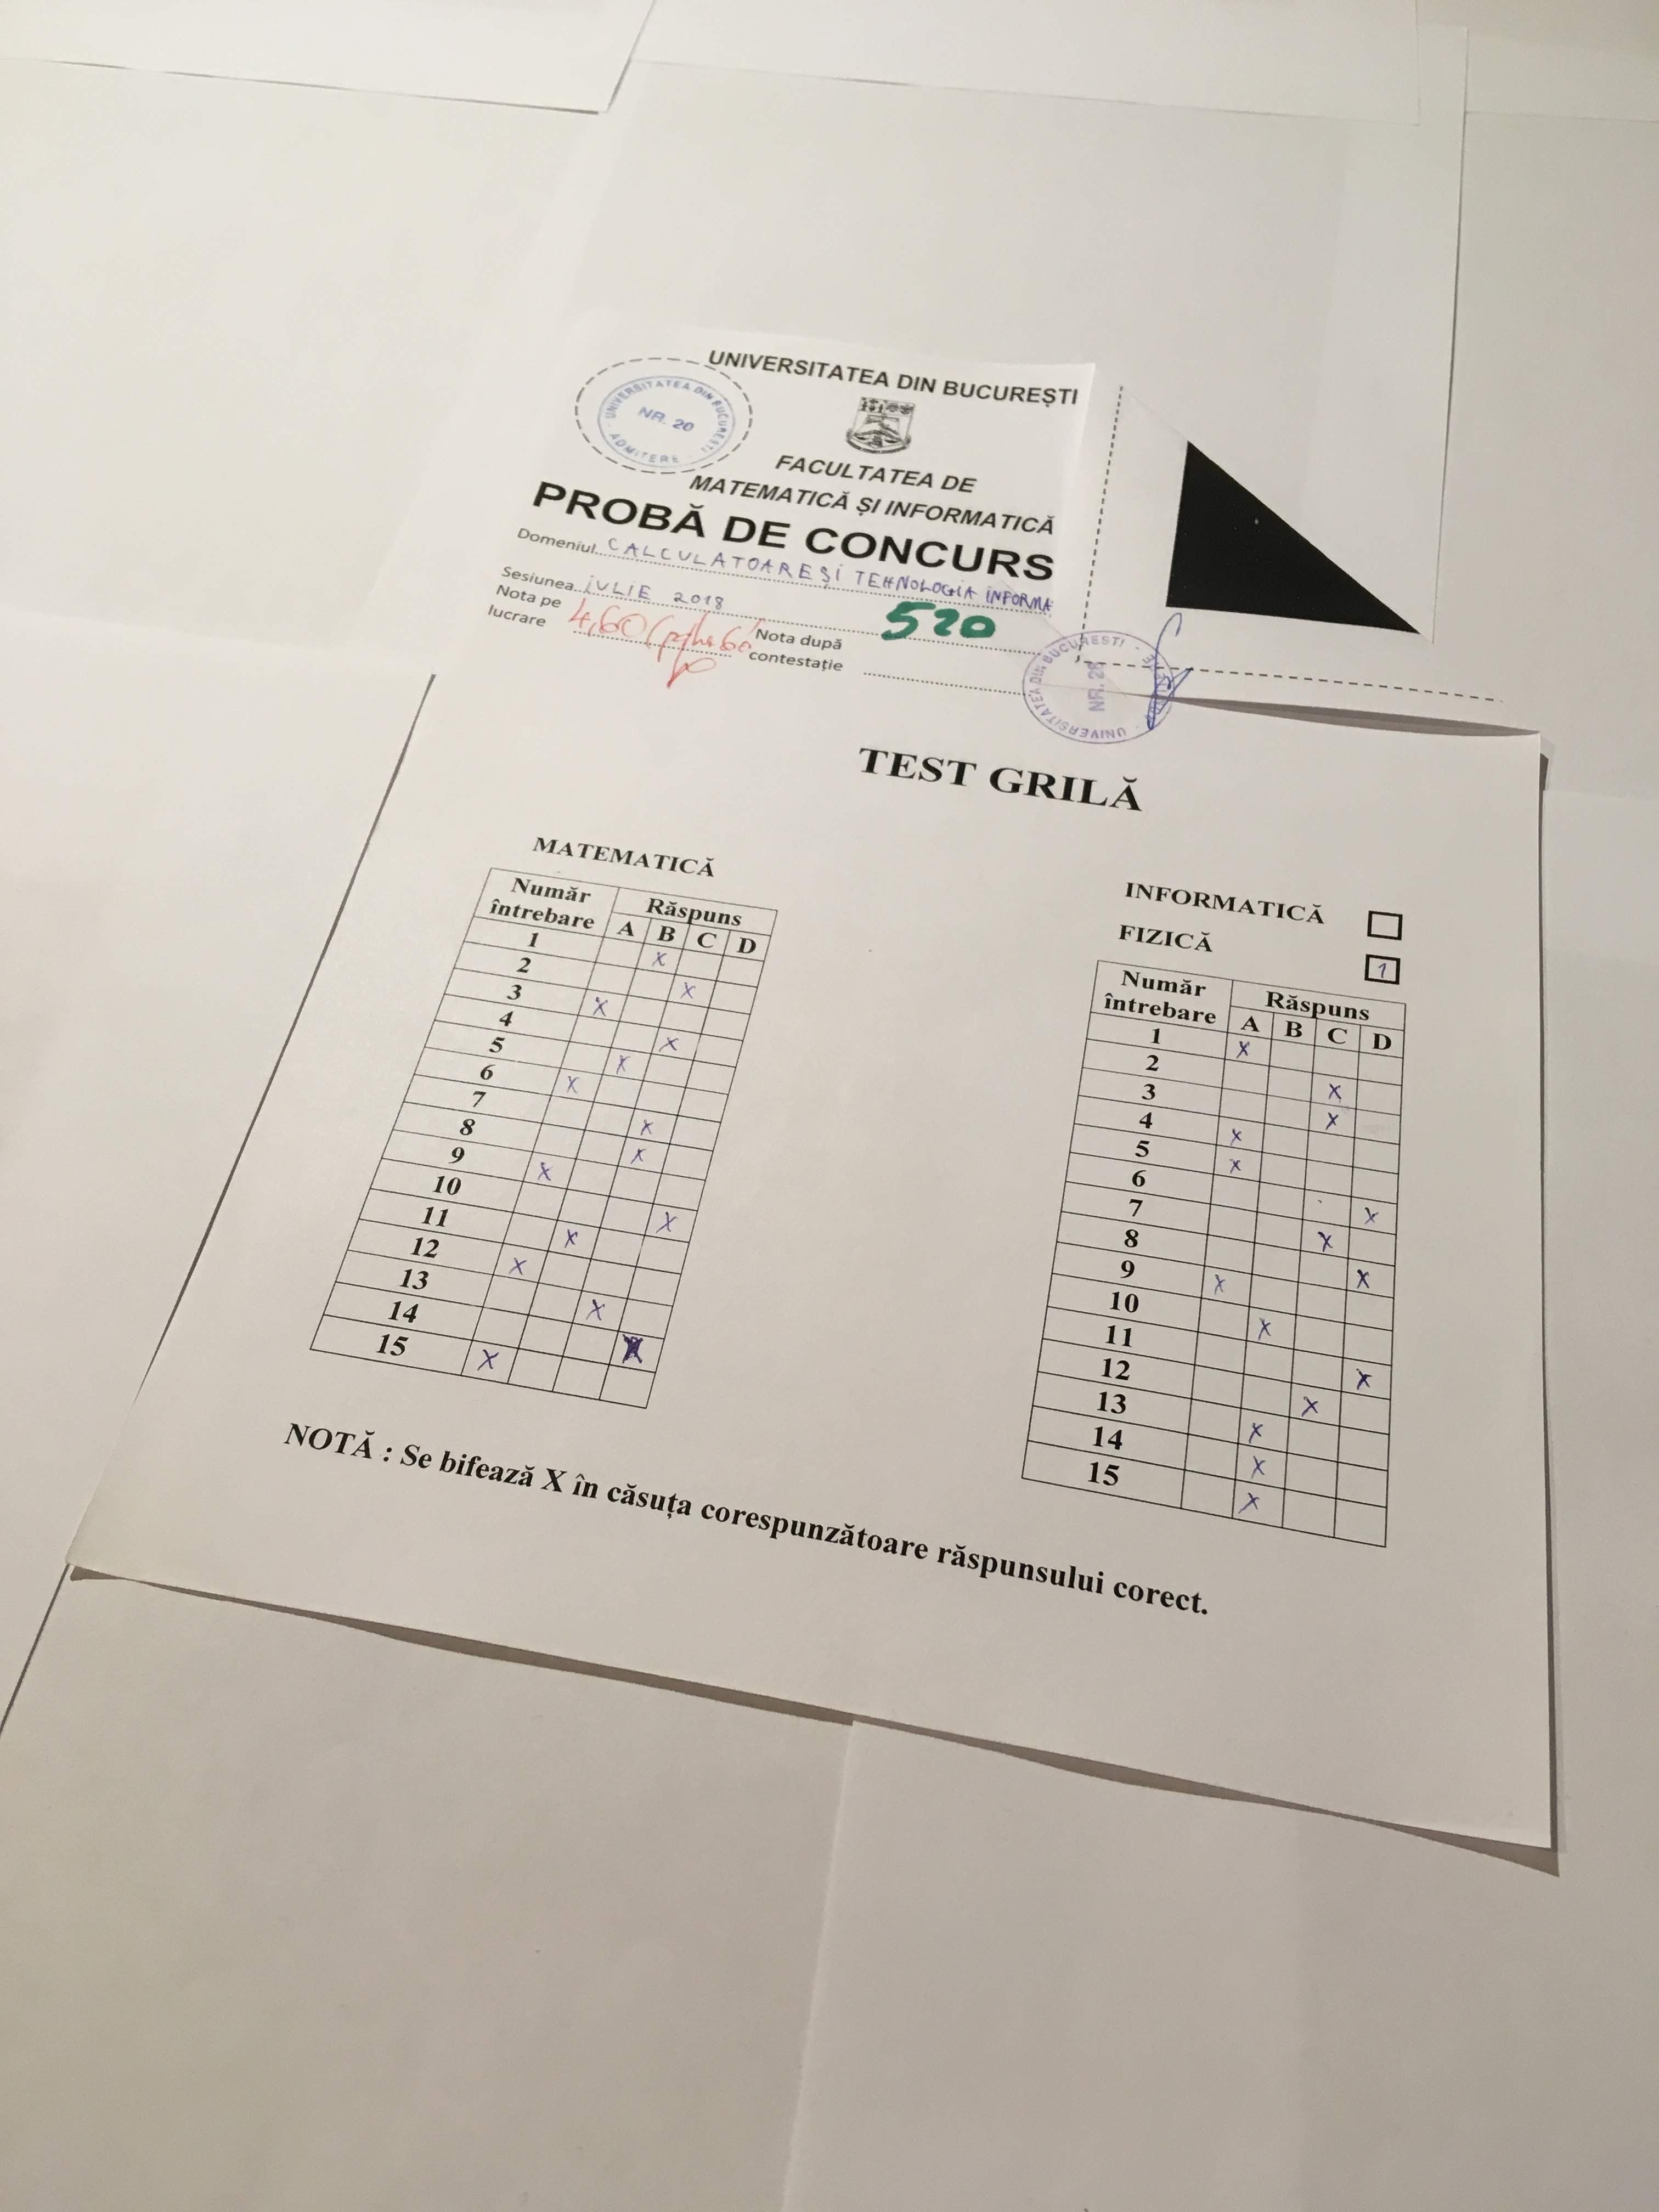 UNIVERSITATEA DIN BUCUREȘTI
UNIVERSITATEA DIN BUCUREȘTI
NR. 20
ADMITERE
FACULTATEA DE
MATEMATICĂ ȘI INFORMATICĂ
PROBĂ DE CONCURS
Domeniul CALCULATOARE ȘI TEHNOLOGIA INFORMA
Sesiunea IULIE 2018
520
Nota pe lucrare 4,60
Nota după contestație
UNIVERSITATEA DIN BUCURESTI
NR. 26
TEST GRILĂ
MATEMATICĂ
Număr întrebare Răspuns
A B C D
1 X
2 X
3 X
4 X
5 X
6 X
7 X
8 X
9 X
10 X
11 X
12 X
13 X
14 X
15 X
INFORMATICĂ
FIZICĂ 1
Număr întrebare Răspuns
A B C D
1 X
2 X
3 X
4 X
5 X
6 X
7 X
8 X
9 X
10 X
11 X
12 X
13 X
14 X
15 X
NOTĂ : Se bifează X în căsuța corespunzătoare răspunsului corect.